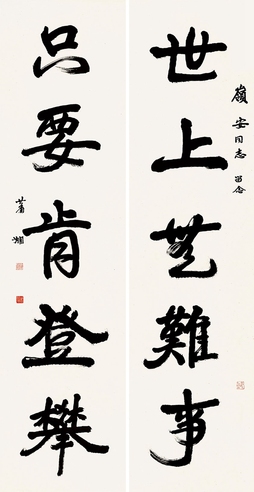 嶺安同志留念
世上無難事
只要肯登攀
蕭嫻